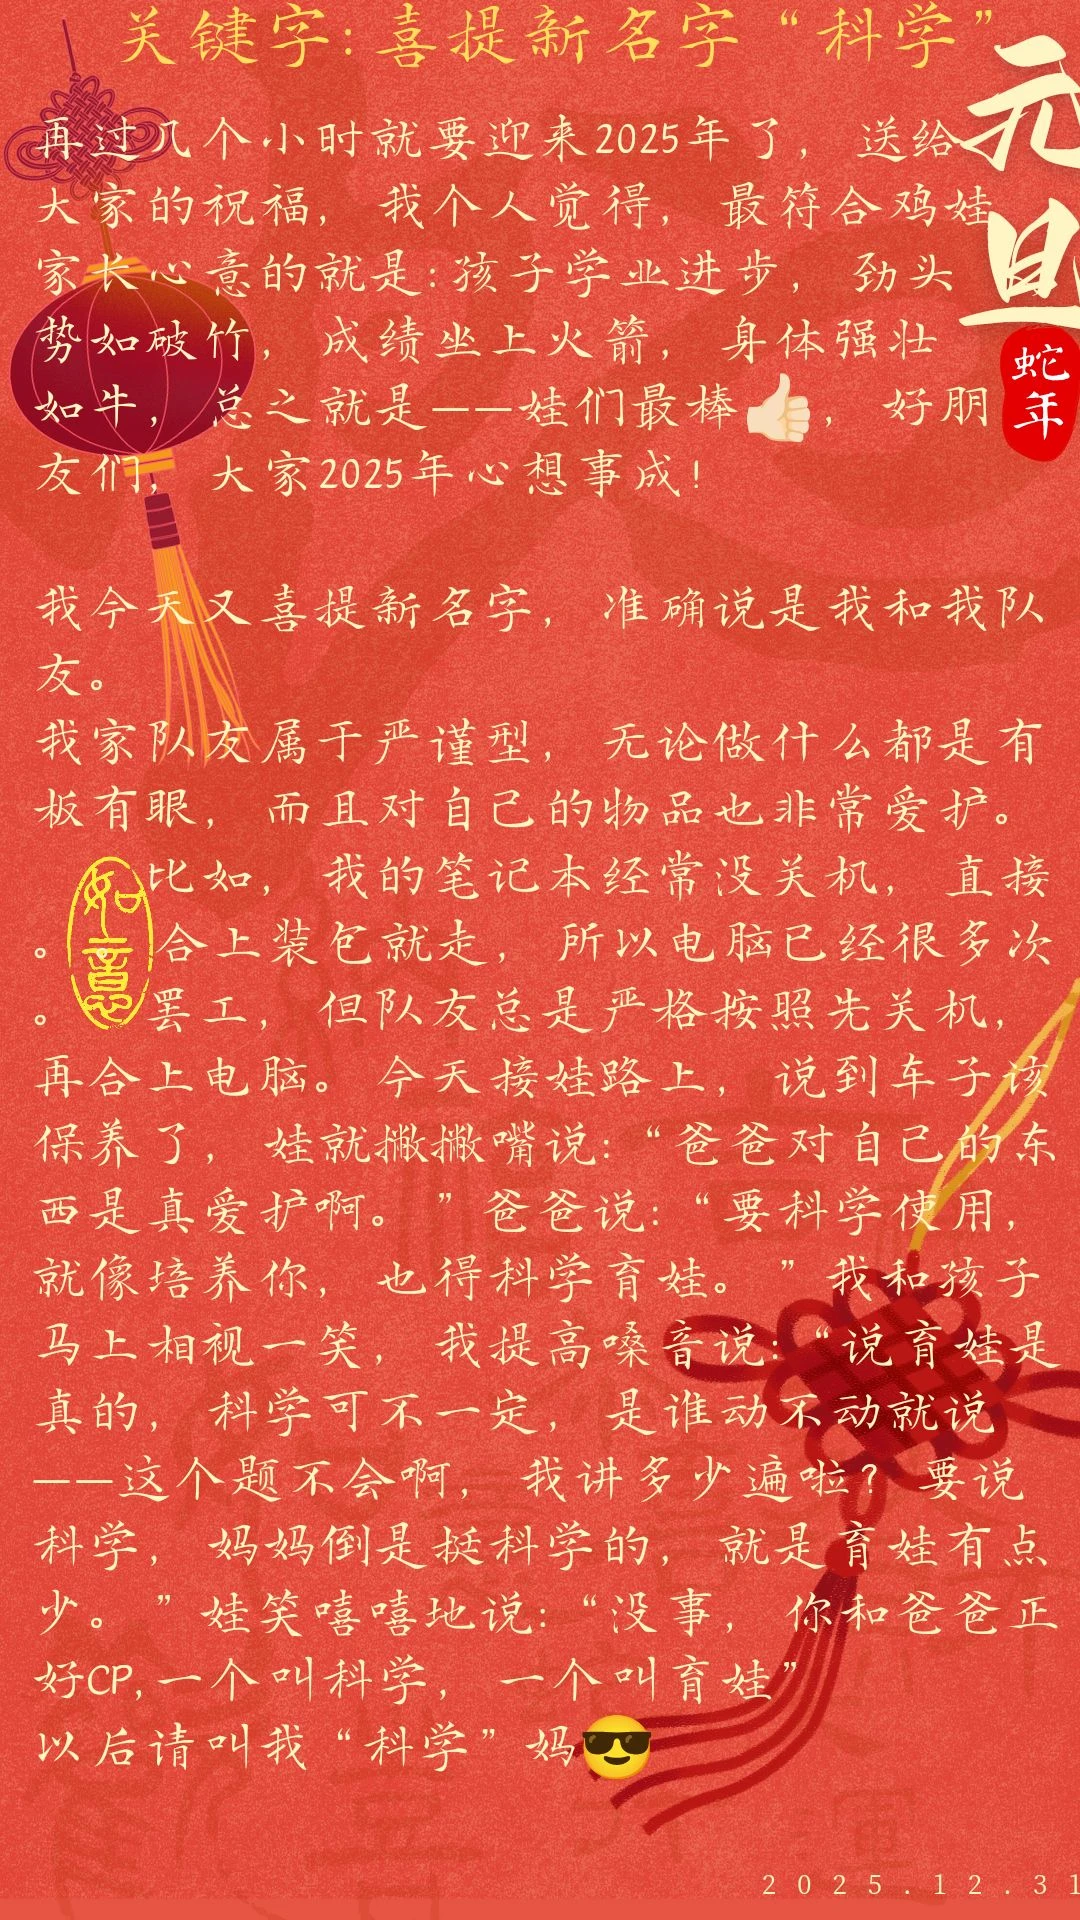 关键字:喜提新名字“科学”
元旦
蛇年
再过几个小时就要迎来2025年了，送给
大家的祝福，我个人觉得，最符合鸡娃
家长心意的就是:孩子学业进步，劲头
势如破竹，成绩坐上火箭，身体强壮
如牛，总之就是——娃们最棒👍🏻，好朋
友们，大家2025年心想事成!
我今天又喜提新名字，准确说是我和我队
友。
我家队友属于严谨型，无论做什么都是有
板有眼，而且对自己的物品也非常爱护。
如意
比如，我的笔记本经常没关机，直接
。合上装包就走，所以电脑已经很多次
。罢工，但队友总是严格按照先关机，
再合上电脑。今天接娃路上，说到车子该
保养了，娃就撇撇嘴说:“爸爸对自己的东
西是真爱护啊。”爸爸说:“要科学使用，
就像培养你，也得科学育娃。”我和孩子
马上相视一笑，我提高嗓音说:“说育娃是
真的，科学可不一定，是谁动不动就说
——这个题不会啊，我讲多少遍啦？要说
科学，妈妈倒是挺科学的，就是育娃有点
少。”娃笑嘻嘻地说:“没事，你和爸爸正
好CP,一个叫科学，一个叫育娃”
以后请叫我“科学”妈😎
2025.12.31